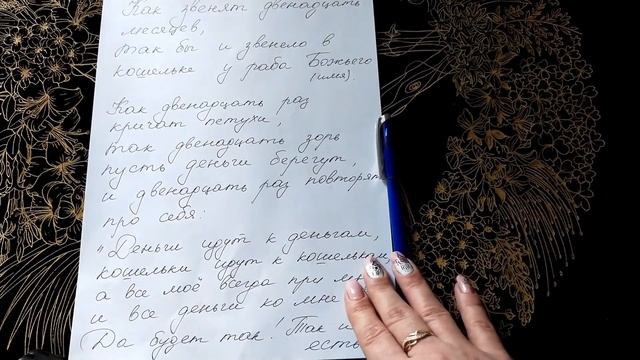 Как звенят двенадцать
месяцев,
так бы и звенело в
кошельке у раба Божьего
(имя).
Как двенадцать раз
кричат петухи,
так двенадцать зорь
пусть деньги берегут,
и двенадцать раз повторят
про себя:
"Деньги идут к деньгам,
кошельки идут к кошельки,
а все моё всегда при мне
и все деньги ко мне
Да будет так! Так и
есть